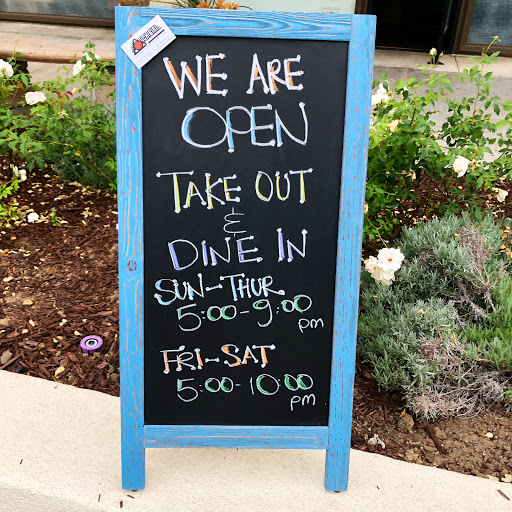 WE ARE
OPEN
TAKE OUT
&
DINE IN
SUN-THUR
5:00-9:00
pm
FRI-SAT
5:00-10:00
pm